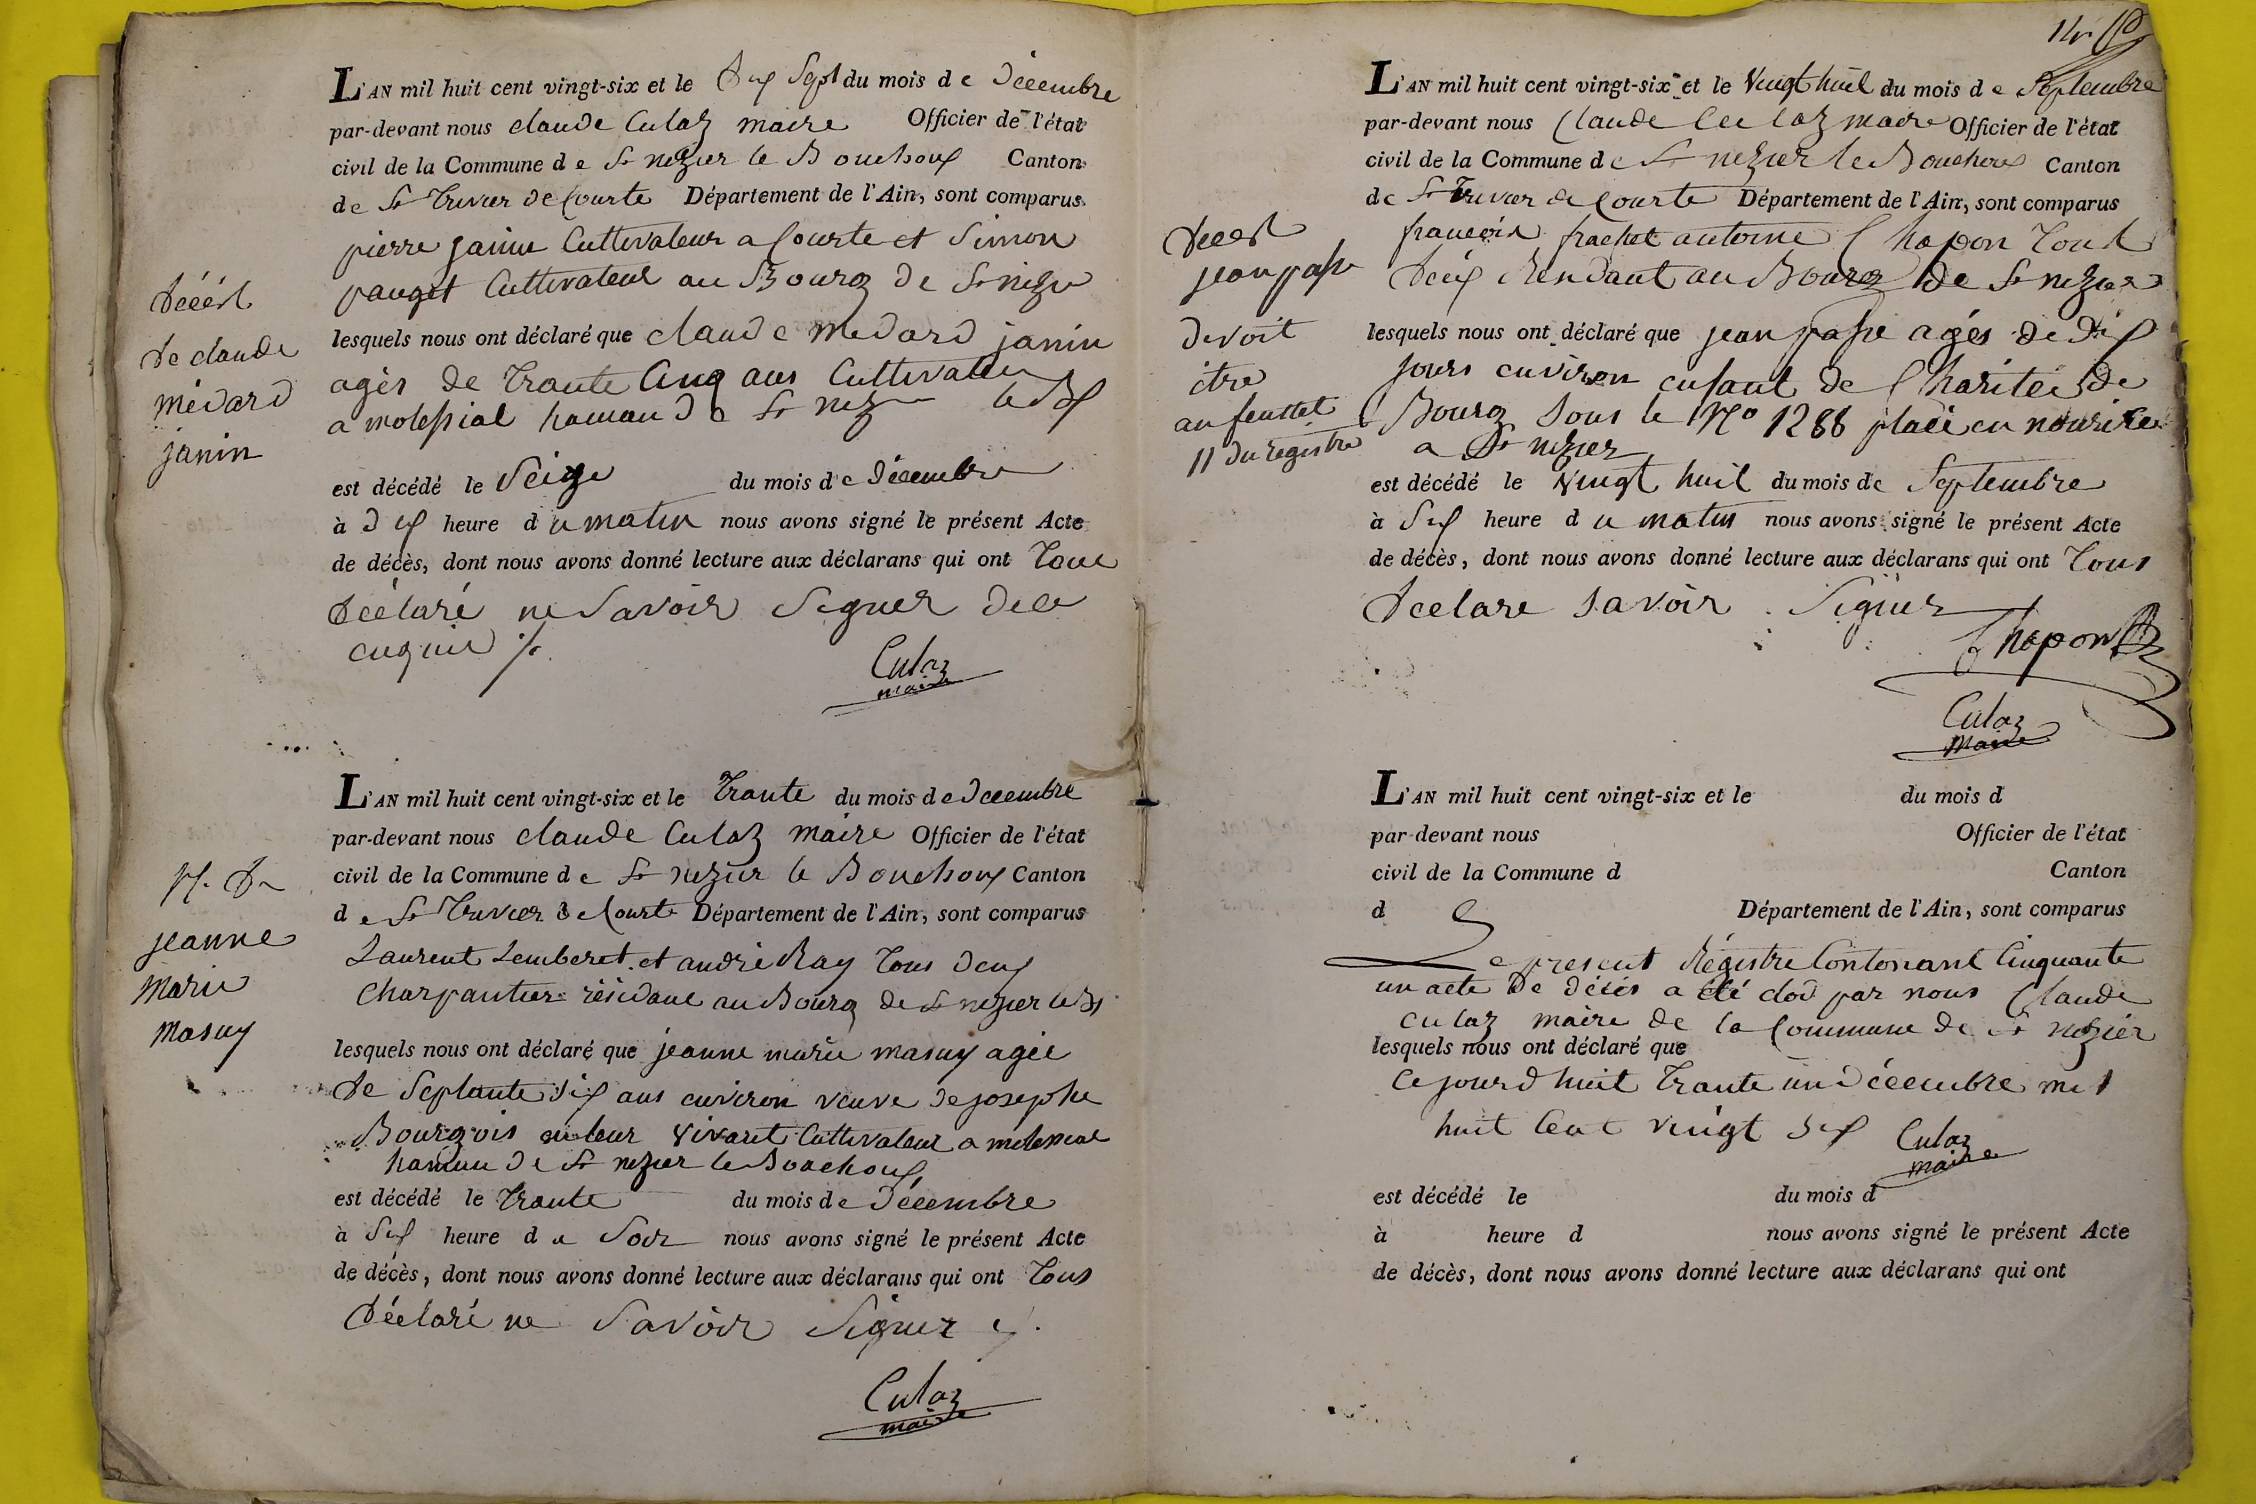 décés
de claude
médard
janin
L'AN mil huit cent vingt-six et le dix Sept du mois de décembre
par-devant nous claude Culaz maire Officier de l'état
civil de la Commune de St nizier le Bouchoux Canton
de St Trivier de Courte Département de l'Ain, sont comparus
pierre janin Cultivateur a Courte et Simon
pauget Cultivateur au Bourg de St nizier
lesquels nous ont déclaré que claude médard janin
agés de trante Cinq ans Cultivateur
a molessial hamau de St nizier
est décédé le Seize du mois de décembre
à dix heure du matin nous avons signé le présent Acte
de décès, dont nous avons donné lecture aux déclarans qui ont Tous
déclaré ne Savoir Signer de ce
enquis
Culaz
maire
jeanne
marie
masuy
L'AN mil huit cent vingt-six et le Trante du mois de décembre
par-devant nous claude Culaz maire Officier de l'état
civil de la Commune de St nizier le Bouchoux Canton
de St Trivier de Courte Département de l'Ain, sont comparus
Laurent Lemberet et andré Ray Tous deux
charpantier résidant au Bourg de St nizier le B
lesquels nous ont déclaré que jeanne marie masuy agée
de Septante dix ans environ veuve de josephe
Bourgois en leur vivant Cultivateur a molessial
hamau de St nizier le Bouchoux
est décédé le Trante du mois de décembre
à Six heure du Soir nous avons signé le présent Acte
de décès, dont nous avons donné lecture aux déclarans qui ont Tous
déclaré ne Savoir Signer
Culaz
maire
14
décés
jean passe
devoit
être
au feuttet
11 du registre
L'AN mil huit cent vingt-six et le Vingt huit du mois de Septembre
par-devant nous Claude Culaz maire Officier de l'état
civil de la Commune de St nizier le Bouchoux Canton
de St Trivier de Courte Département de l'Ain, sont comparus
françois frachet antoine Chapon Tout
deux Rendant au Bourg de St nizier
lesquels nous ont déclaré que jean passe agés de dix
jours environ enfant de Charitée de
Bourg Sous le No 1288 placé en nourice
a St nizier
est décédé le Vingt huit du mois de Septembre
à Six heure du matin nous avons signé le présent Acte
de décès, dont nous avons donné lecture aux déclarans qui ont Tous
declare savoir Signer
Chapon
Culaz
Maire
L'AN mil huit cent vingt-six et le du mois d
par-devant nous Officier de l'état
civil de la Commune d Canton
d Département de l'Ain, sont comparus
Le present Régistre Contenant Cinquante
un acte de décés a été clos par nous Claude
culaz maire de la Commune de St nizier
lesquels nous ont déclaré que
Ce jourd huit Trante un décembre mil
huit Cent vingt Six
Culaz
maire
est décédé le du mois d
à heure d nous avons signé le présent Acte
de décès, dont nous avons donné lecture aux déclarans qui ont